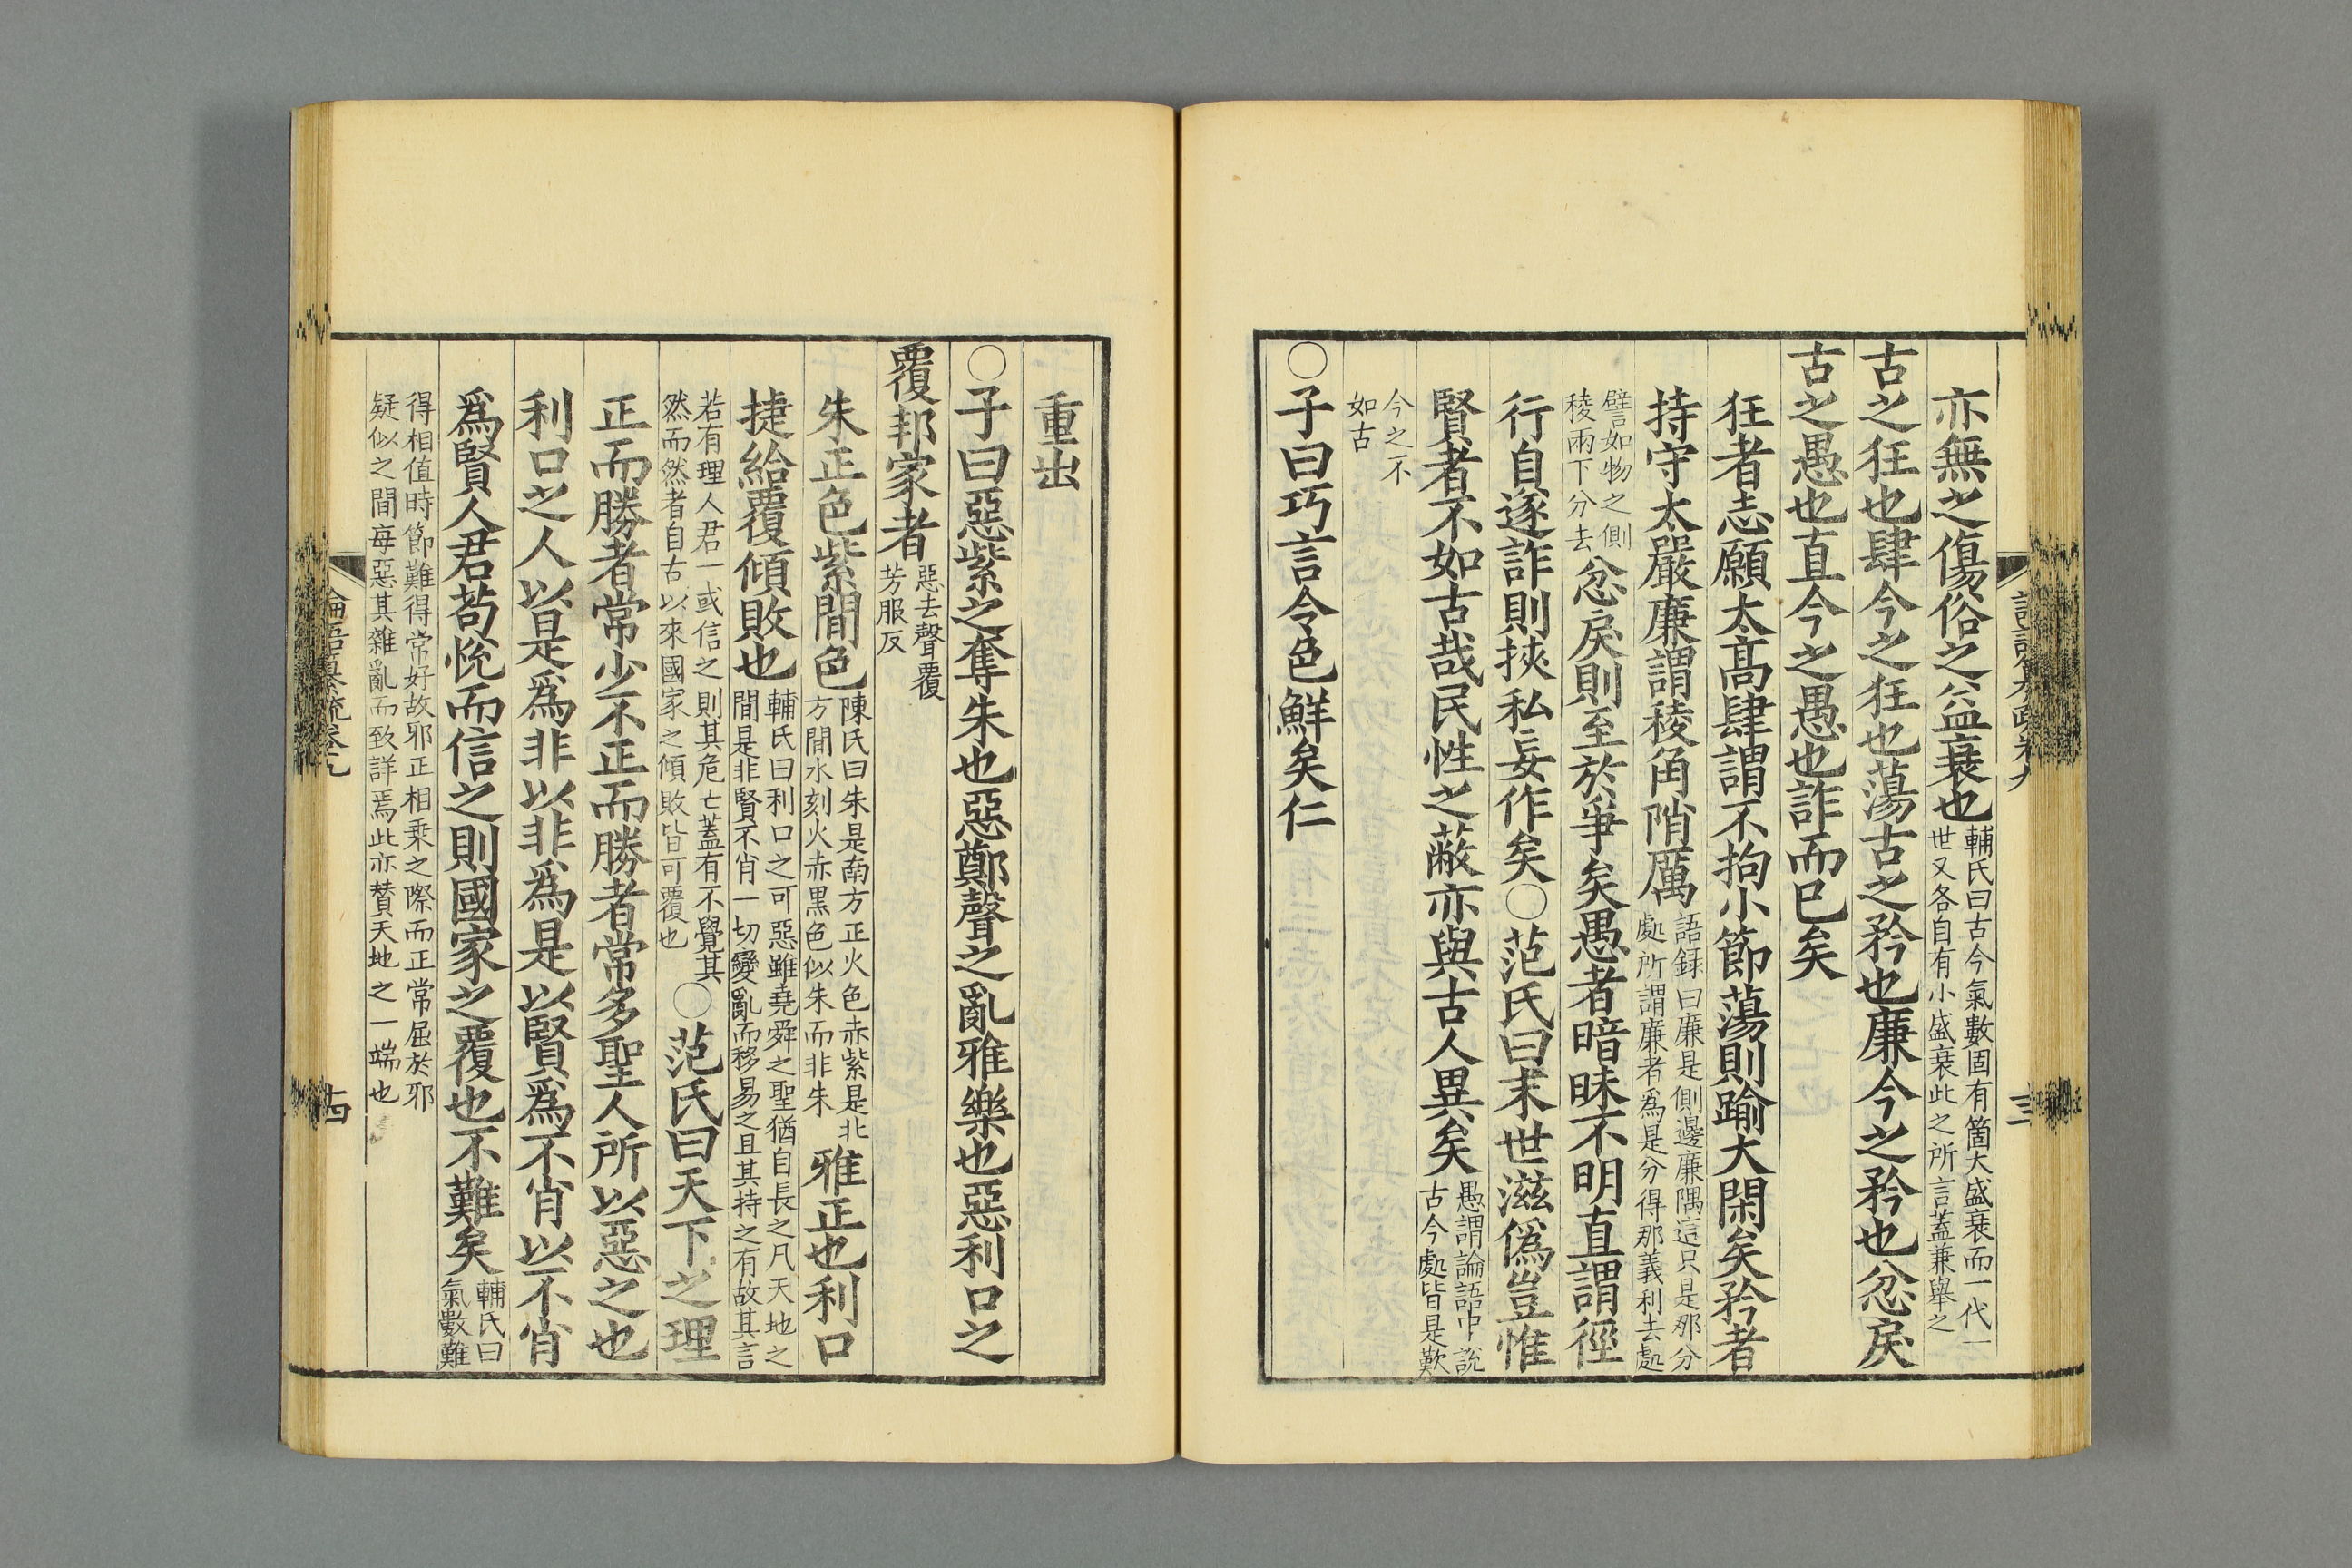 亦無之傷俗之益衰也輔氏曰古今氣數固有箇大盛衰而一代一世又各自有小盛衰此之所言蓋兼舉之
古之狂也肆今之狂也蕩古之矜也廉今之矜也忿戾
古之愚也直今之愚也詐而已矣
狂者志願太高肆謂不拘小節蕩則踰大閑矣矜者
持守太嚴廉謂稜角陗厲語録曰廉是側邊廉隅這只是那分處所謂廉者為是分得那義利去處
譬如物之側稜兩下分去忿戾則至於爭矣愚者暗昧不明直謂徑
行自遂詐則挾私妄作矣○范氏曰末世滋僞豈惟
賢者不如古哉民性之蔽亦與古人異矣愚謂論語中說古今處皆是歎
今之不如古
○子曰巧言令色鮮矣仁
重出
○子曰惡紫之奪朱也惡鄭聲之亂雅樂也惡利口之
覆邦家者惡去聲覆芳服反
朱正色紫間色陳氏曰朱是南方正火色赤紫是北方間水刻火赤黒色似朱而非朱雅正也利口
捷給覆傾敗也輔氏曰利口之可惡雖堯舜之聖猶自長之凡天地之間是非賢不肖一切變亂而移易之且其持之有故其言
若有理人君一或信之則其危亡蓋有不覺其然而然者自古以來國家之傾敗皆可覆也○范氏曰天下之理
正而勝者常少不正而勝者常多聖人所以惡之也
利口之人以是爲非以非爲是以賢爲不肖以不肖
爲賢人君苟悅而信之則國家之覆也不難矣輔氏曰氣數難
得相值時節難得常好故邪正相乗之際而正常屈於邪疑似之間毎惡其雜亂而致詳焉此亦賛天地之一端也
論語纂疏卷九
十四